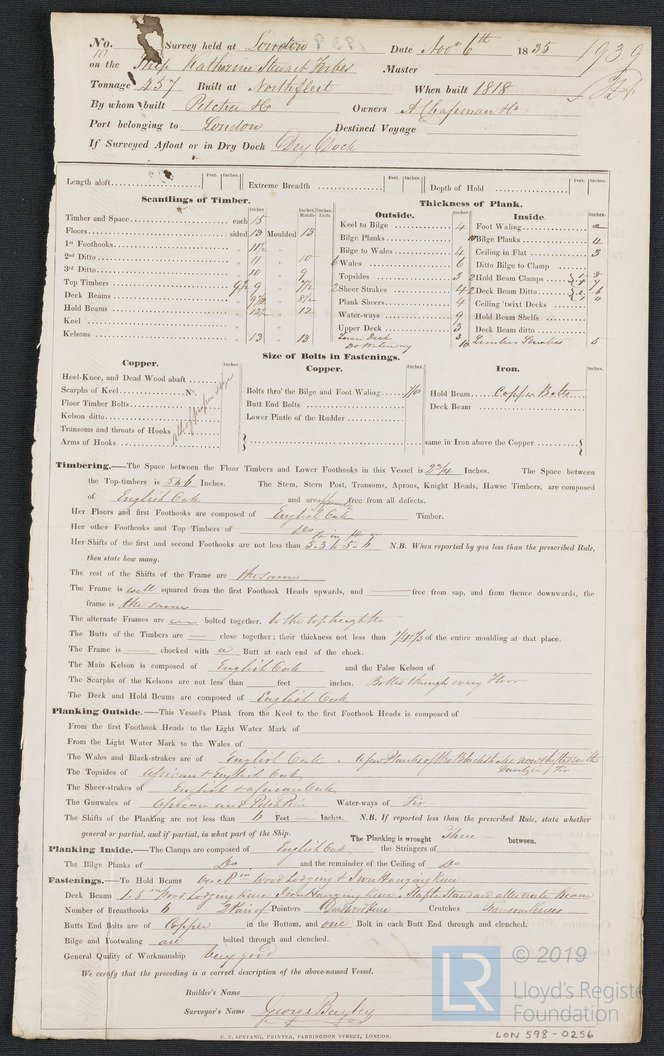 No. 10 Survey held at London Date Nov 6th 1835 1939
on the Ship Katherine Stewart Forbes Master
Tonnage 457 Built at Northfleet When built 1818
By whom built Pitcher & Co Owners A Chapman & Co
Port belonging to London Destined Voyage
If Surveyed Afloat or in Dry Dock Dry Dock
Length aloft Feet. Inches. Extreme Breadth Feet. Inches. Depth of Hold Feet. Inches.
Scantlings of Timber.
Inches Inches Middle Inches Ends
Timber and Space each 15
Floors sided 13 Moulded 13
1st Foothooks 11½
2nd Ditto 11 10
3rd Ditto 10 9
Top Timbers 9½ 9 7½
Deck Beams 8½
Hold Beams 12½ 12
Keel
Kelsons 13 13
Thickness of Plank.
Outside. Inches
Keel to Bilge 4
Bilge Planks
Bilge to Wales 4
6 Wales 6
Topsides 3
2 Sheer Strakes 4
Plank Sheers 4
Water-ways 9
Upper Deck 3
Lower Deck 3
Do Waterway 10
Inside. Inches.
Foot Waling
10 Bilge Planks 4
Ceiling in Flat 3
Ditto Bilge to Clamp
2 Hold Beam Clamps
2 Deck Beam Ditto
Ceiling 'twixt Decks
Hold Beam Shelfs
Deck Beam ditto
Limber Strakes 5
Size of Bolts in Fastenings.
Copper. Inches
Heel-Knee, and Dead Wood abaft
Scarphs of Keel No.
Floor Timber Bolts
Kelson ditto
Transoms and throats of Hooks
Arms of Hooks
all of proper size
Copper. Inches
Bolts thro' the Bilge and Foot Waling
Butt End Bolts
Lower Pintle of the Rudder
Iron. Inches
Hold Beam Copper Bolts
Deck Beam
same in Iron above the Copper
Timbering.—The Space between the Floor Timbers and Lower Foothooks in this Vessel is 2¾ Inches. The Space between
the Top-timbers is 5 a 6 Inches. The Stem, Stern Post, Transoms, Aprons, Knight Heads, Hawse Timbers, are composed
of English Oak and are apparently free from all defects.
Her Floors and first Foothooks are composed of English Oak Timber.
Her other Foothooks and Top Timbers of Do
Her Shifts of the first and second Foothooks are not less than 5.3 to 5.6 N.B. When reported by you less than the prescribed Rule,
then state how many.
The rest of the Shifts of the Frame are the same
The Frame is well squared from the first Foothook Heads upwards, and free from sap, and from thence downwards, the
frame is the same
The alternate Frames are bolted together. to the topheights
The Butts of the Timbers are close together; their thickness not less than of the entire moulding at that place.
The Frame is chocked with a Butt at each end of the chock.
The Main Kelson is composed of English Oak and the False Kelson of
The Scarphs of the Kelsons are not less than feet inches. Bolted through every Floor
The Deck and Hold Beams are composed of English Oak
Planking Outside.—This Vessel's Plank from the Keel to the first Foothook Heads is composed of
From the first Foothook Heads to the Light Water Mark of
From the Light Water Mark to the Wales of
The Wales and Black-strakes are of English Oak. A few Planks of the Blackstrakes now shifted with
Dantzic Fir
The Topsides of African & English Oak
The Sheer-strakes of English & African Oak
The Gunwales of African and Pitch Pine Water-ways of Fir
The Shifts of the Planking are not less than 6 Feet Inches. N.B. If reported less than the prescribed Rule, state whether
general or partial, and if partial, in what part of the Ship. The Planking is wrought Three between.
Planking Inside.—The Clamps are composed of English Oak the Stringers of
The Bilge Planks of Do and the remainder of the Ceiling of Do
Fastenings.—To Hold Beams Wood Lodging & Iron Hanging Knee
Deck Beams Wood Lodging Knee Iron Hanging Knee Staple Standard alternate Beam
Number of Breasthooks 6 2 Pair of Pointers Crutches Transom Knees
Butts End Bolts are of Copper in the Bottom, and one Bolt in each Butt End through and clenched.
Bilge and Footwaling are bolted through and clenched.
General Quality of Workmanship Very good
We certify that the preceding is a correct description of the above-named Vessel.
Builder's Name
Surveyor's Name George Bayley
C. F. SEYFANG, PRINTER, FARRINGDON STREET, LONDON.
LR © 2019
Lloyd's Register
Foundation
LON 598-0256